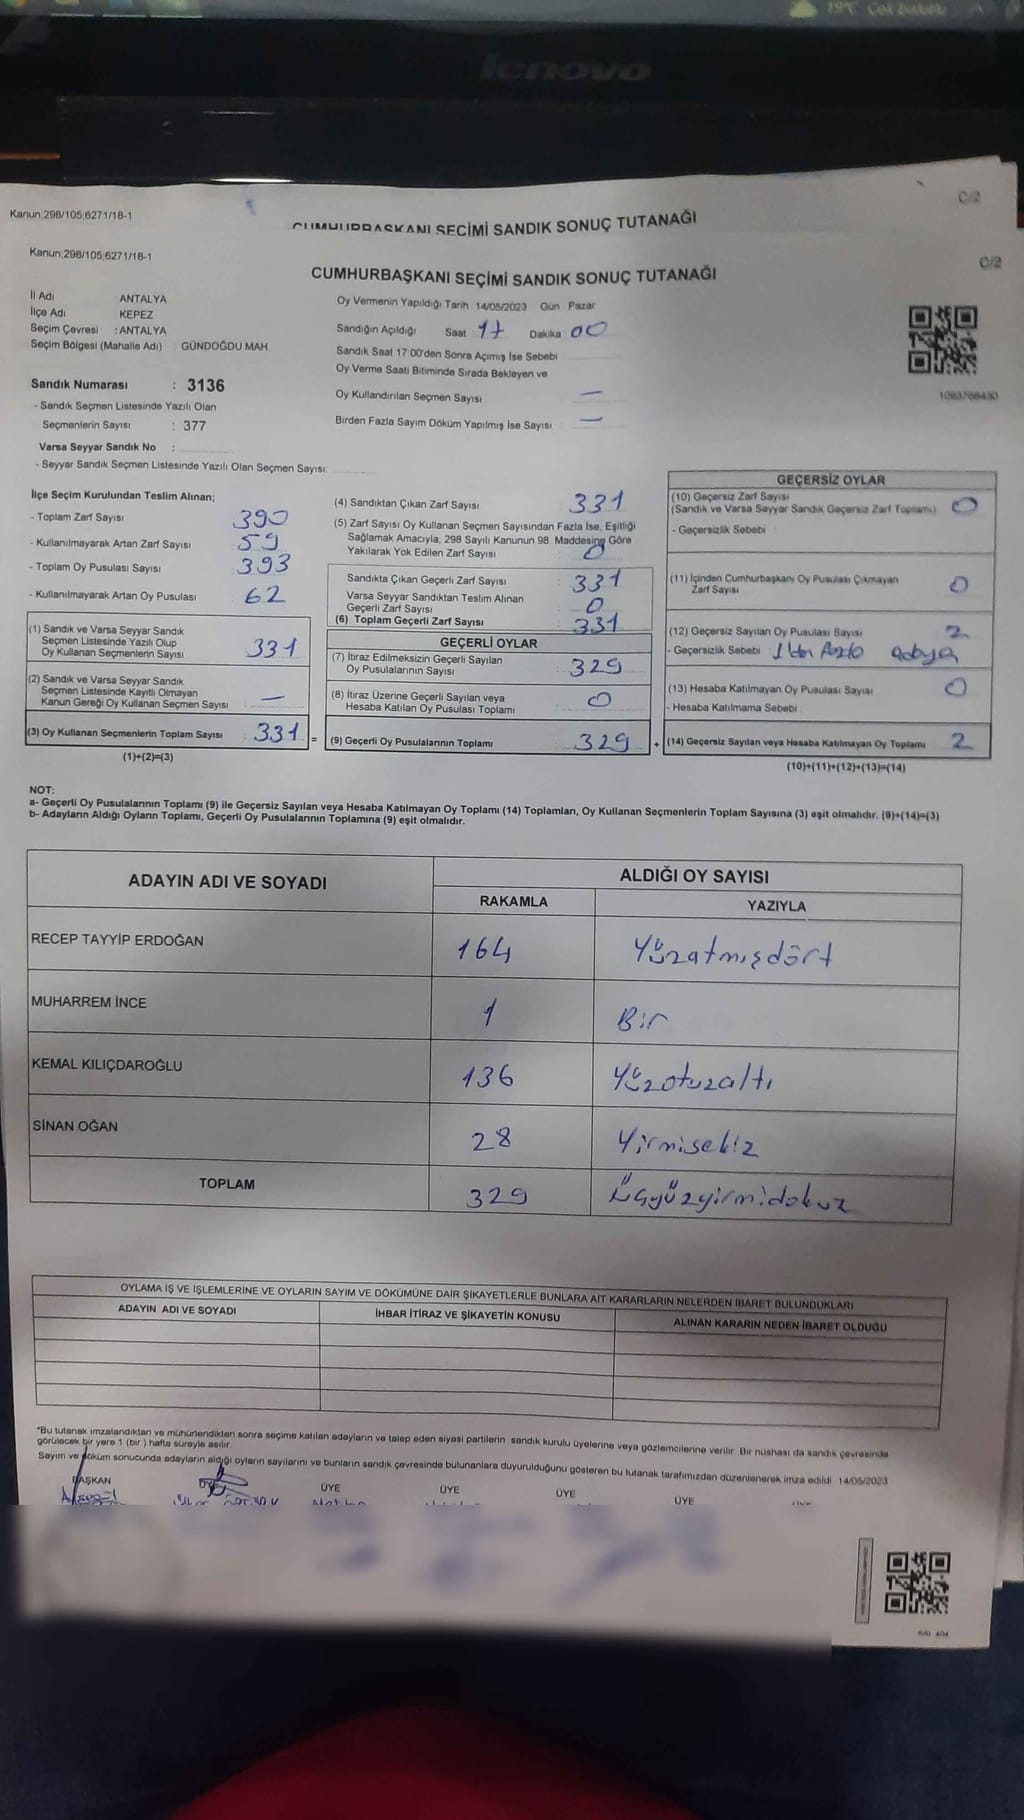 19°C Çok bulutlu
lenovo
C/2
Kanun;298/105;6271/18-1
CUMHURBAŞKANI SEÇİMİ SANDIK SONUÇ TUTANAĞI
Kanun;298/105;6271/18-1
C/2
CUMHURBAŞKANI SEÇİMİ SANDIK SONUÇ TUTANAĞI
İl Adı ANTALYA
İlçe Adı KEPEZ
Seçim Çevresi : ANTALYA
Seçim Bölgesi (Mahalle Adı) GÜNDOĞDU MAH.
Sandık Numarası : 3136
- Sandık Seçmen Listesinde Yazılı Olan
Seçmenlerin Sayısı : 377
Varsa Seyyar Sandık No :
- Seyyar Sandık Seçmen Listesinde Yazılı Olan Seçmen Sayısı:
Oy Vermenin Yapıldığı Tarih 14/05/2023 Gün Pazar
Sandığın Açıldığı Saat 17 Dakika 00
Sandık Saat 17:00'den Sonra Açımış İse Sebebi
Oy Verme Saati Bitiminde Sırada Bekleyen ve
Oy Kullandırılan Seçmen Sayısı —
Birden Fazla Sayım Döküm Yapılmış İse Sayısı —
İlçe Seçim Kurulundan Teslim Alınan;
- Toplam Zarf Sayısı 390
- Kullanılmayarak Artan Zarf Sayısı 59
- Toplam Oy Pusulası Sayısı 393
- Kullanılmayarak Artan Oy Pusulası 62
(1) Sandık ve Varsa Seyyar Sandık
Seçmen Listesinde Yazılı Olup
Oy Kullanan Seçmenlerin Sayısı 331
(2) Sandık ve Varsa Seyyar Sandık
Seçmen Listesinde Kayıtlı Olmayan
Kanun Gereği Oy Kullanan Seçmen Sayısı —
(3) Oy Kullanan Seçmenlerin Toplam Sayısı 331 =
(1)+(2)=(3)
(4) Sandıktan Çıkan Zarf Sayısı 331
(5) Zarf Sayısı Oy Kullanan Seçmen Sayısından Fazla İse, Eşitliği
Sağlamak Amacıyla, 298 Sayılı Kanunun 98. Maddesine Göre
Yakılarak Yok Edilen Zarf Sayısı 0
Sandıkta Çıkan Geçerli Zarf Sayısı 331
Varsa Seyyar Sandıktan Teslim Alınan
Geçerli Zarf Sayısı 0
(6) Toplam Geçerli Zarf Sayısı 331
GEÇERLİ OYLAR
(7) İtiraz Edilmeksizin Geçerli Sayılan
Oy Pusulalarının Sayısı 329
(8) İtiraz Üzerine Geçerli Sayılan veya
Hesaba Katılan Oy Pusulası Toplamı 0
(9) Geçerli Oy Pusulalarının Toplamı 329 +
GEÇERSİZ OYLAR
(10) Geçersiz Zarf Sayısı
(Sandık ve Varsa Seyyar Sandık Geçersiz Zarf Toplamı) 0
- Geçersizlik Sebebi :
(11) İçinden Cumhurbaşkanı Oy Pusulası Çıkmayan
Zarf Sayısı 0
(12) Geçersiz Sayılan Oy Pusulası Sayısı 2
- Geçersizlik Sebebi 1'den fazla adaya
(13) Hesaba Katılmayan Oy Pusulası Sayısı 0
- Hesaba Katılmama Sebebi
(14) Geçersiz Sayılan veya Hesaba Katılmayan Oy Toplamı 2
(10)+(11)+(12)+(13)=(14)
NOT:
a- Geçerli Oy Pusulalarının Toplamı (9) ile Geçersiz Sayılan veya Hesaba Katılmayan Oy Toplamı (14) Toplamları, Oy Kullanan Seçmenlerin Toplam Sayısına (3) eşit olmalıdır. (9)+(14)=(3)
b- Adayların Aldığı Oyların Toplamı, Geçerli Oy Pusulalarının Toplamına (9) eşit olmalıdır.
ADAYIN ADI VE SOYADI ALDIĞI OY SAYISI
RAKAMLA YAZIYLA
RECEP TAYYİP ERDOĞAN 164 Yüzatmışdört
MUHARREM İNCE 1 Bir
KEMAL KILIÇDAROĞLU 136 Yüzotuzaltı
SİNAN OĞAN 28 Yirmisekiz
TOPLAM 329 Üçyüzyirmidokuz
OYLAMA İŞ VE İŞLEMLERİNE VE OYLARIN SAYIM VE DÖKÜMÜNE DAİR ŞİKAYETLERLE BUNLARA AİT KARARLARIN NELERDEN İBARET BULUNDUKLARI
ADAYIN ADI VE SOYADI İHBAR İTİRAZ VE ŞİKAYETİN KONUSU ALINAN KARARIN NEDEN İBARET OLDUĞU
*Bu tutanak imzalandıktan ve mühürlendikten sonra seçime katılan adayların ve talep eden siyasi partilerin sandık kurulu üyelerine veya gözlemcilerine verilir. Bir nüshası da sandık çevresinde
görülecek bir yere 1 (bir) hafta süreyle asılır.
Sayım ve döküm sonucunda adayların aldığı oyların sayılarını ve bunların sandık çevresinde bulunanlara duyurulduğunu gösteren bu tutanak tarafımızdan düzenlenerek imza edildi. 14/05/2023
BAŞKAN ÜYE ÜYE ÜYE ÜYE ÜYE